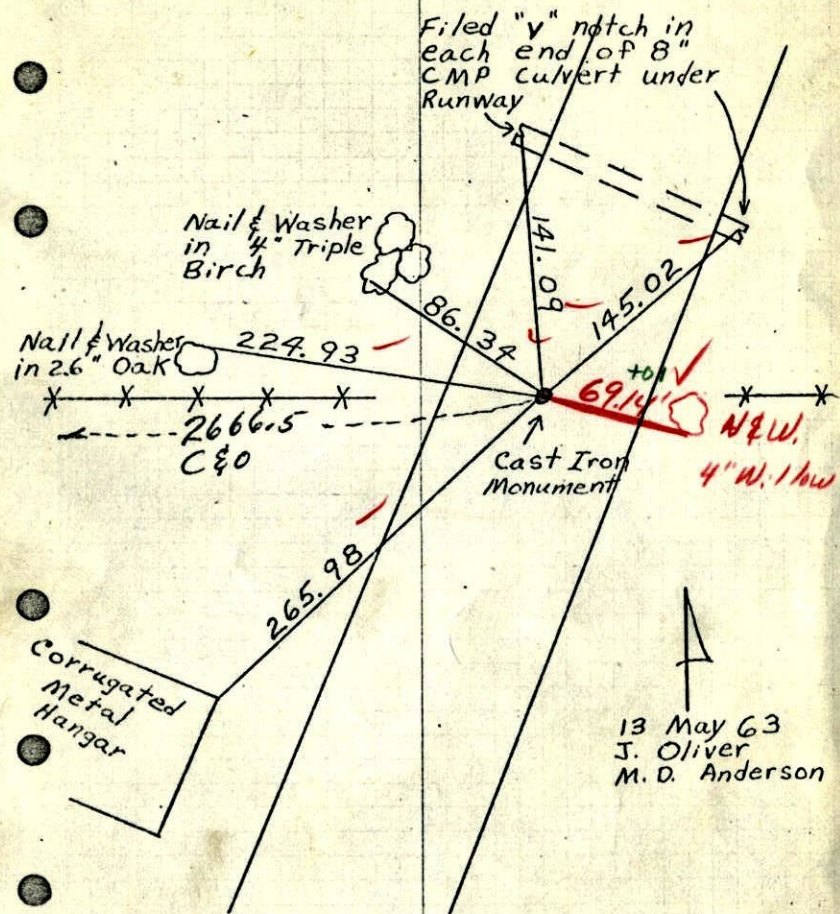 Filed "v" notch in
each end of 8"
CMP Culvert under
Runway
Nail & Washer
in 4" Triple
Birch
141.09
145.02
86.34
Nail & Washer
in 2.6" Oak
224.93
+01
69.14'
N & W.
4" Willow
2666.5
C & O
Cast Iron
Monument
265.98
Corrugated
Metal
Hangar
13 May 63
J. Oliver
M. D. Anderson